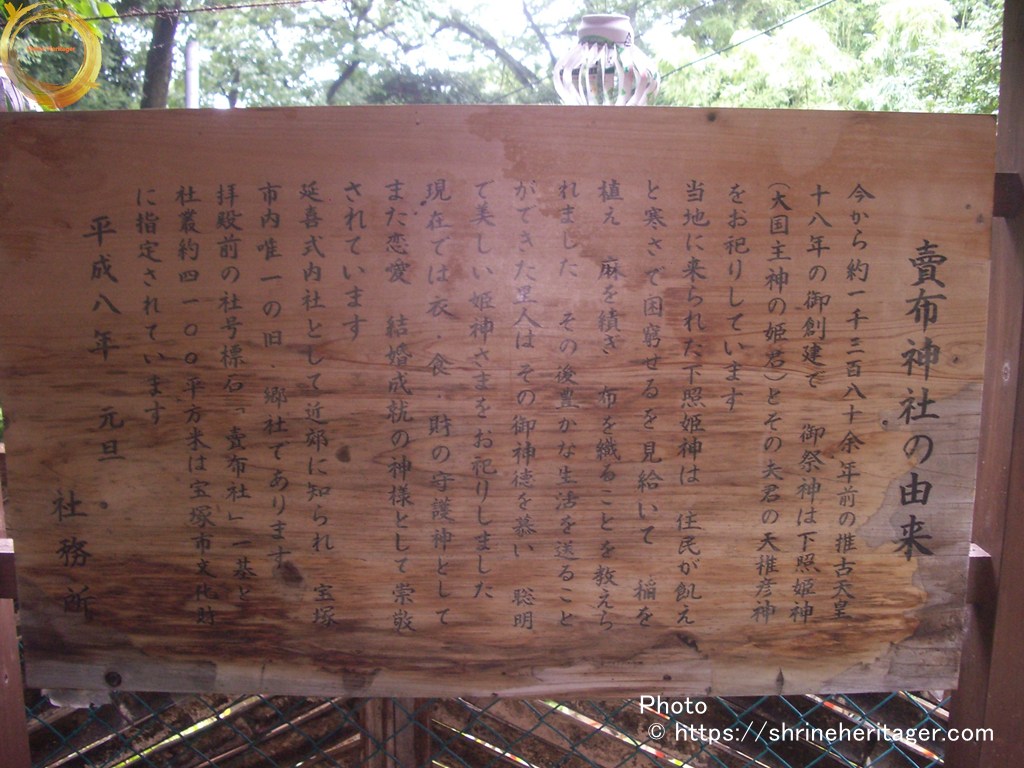 賣布神社の由来
今から約一千三百八十余年前の推古天皇
十八年の御創建で 御祭神は下照姫神
(大国主神の姫君)とその夫君の天稚彦神
をお祀りしています
当地に来られた下照姫神は 住民が飢え
と寒さで困窮せるを見給いて 稲を
植え 麻を績ぎ 布を織ることを教えら
れました その後豊かな生活を送ること
ができた里人は その御神徳を慕い 聡明
で美しい姫神さまをお祀りしました
現在では衣・食・財の守護神として
また恋愛 結婚成就の神様として崇敬
されています
延喜式内社として近郊に知られ 宝塚
市内唯一の旧・郷社であります
拝殿前の社号標石「賣布社」一基と
社叢約四一〇〇平方米は宝塚市文化財
に指定されています
平成八年 元旦
社務所
Photo
© https://shrineheritager.com